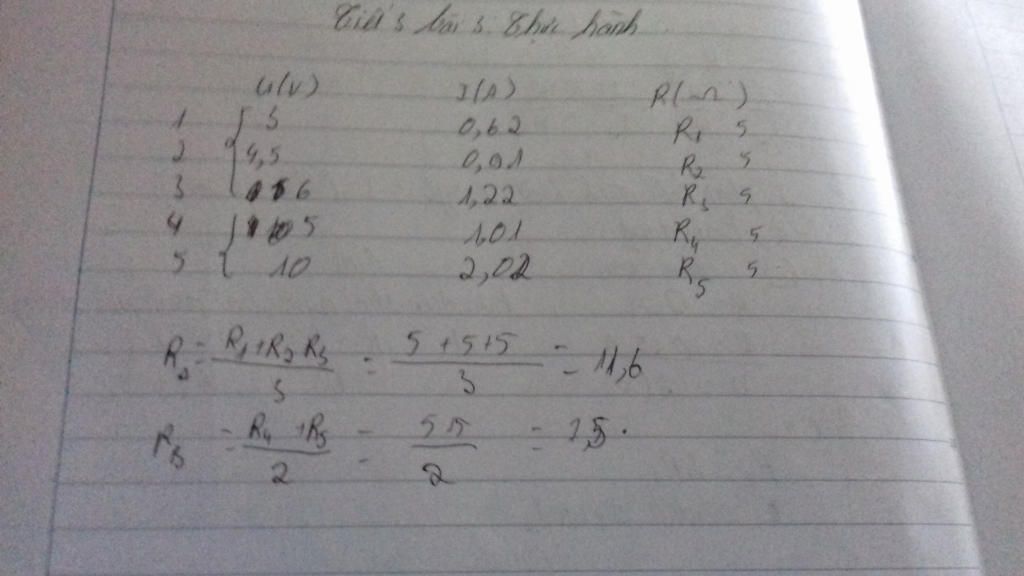 Tiết 3 bài 3. Thực hành
U(V) I(A) R(Ω)
1 3 0,62 R1 5
2 4,5 0,91 R2 5
3 6 1,22 R3 5
4 5 1,01 R4 5
5 10 2,02 R5 5
R = R1+R2 R3 / 3 = 5+5+5 / 3 = 11,6
R = R4+R5 / 2 = 5 5 / 2 = 7,5.